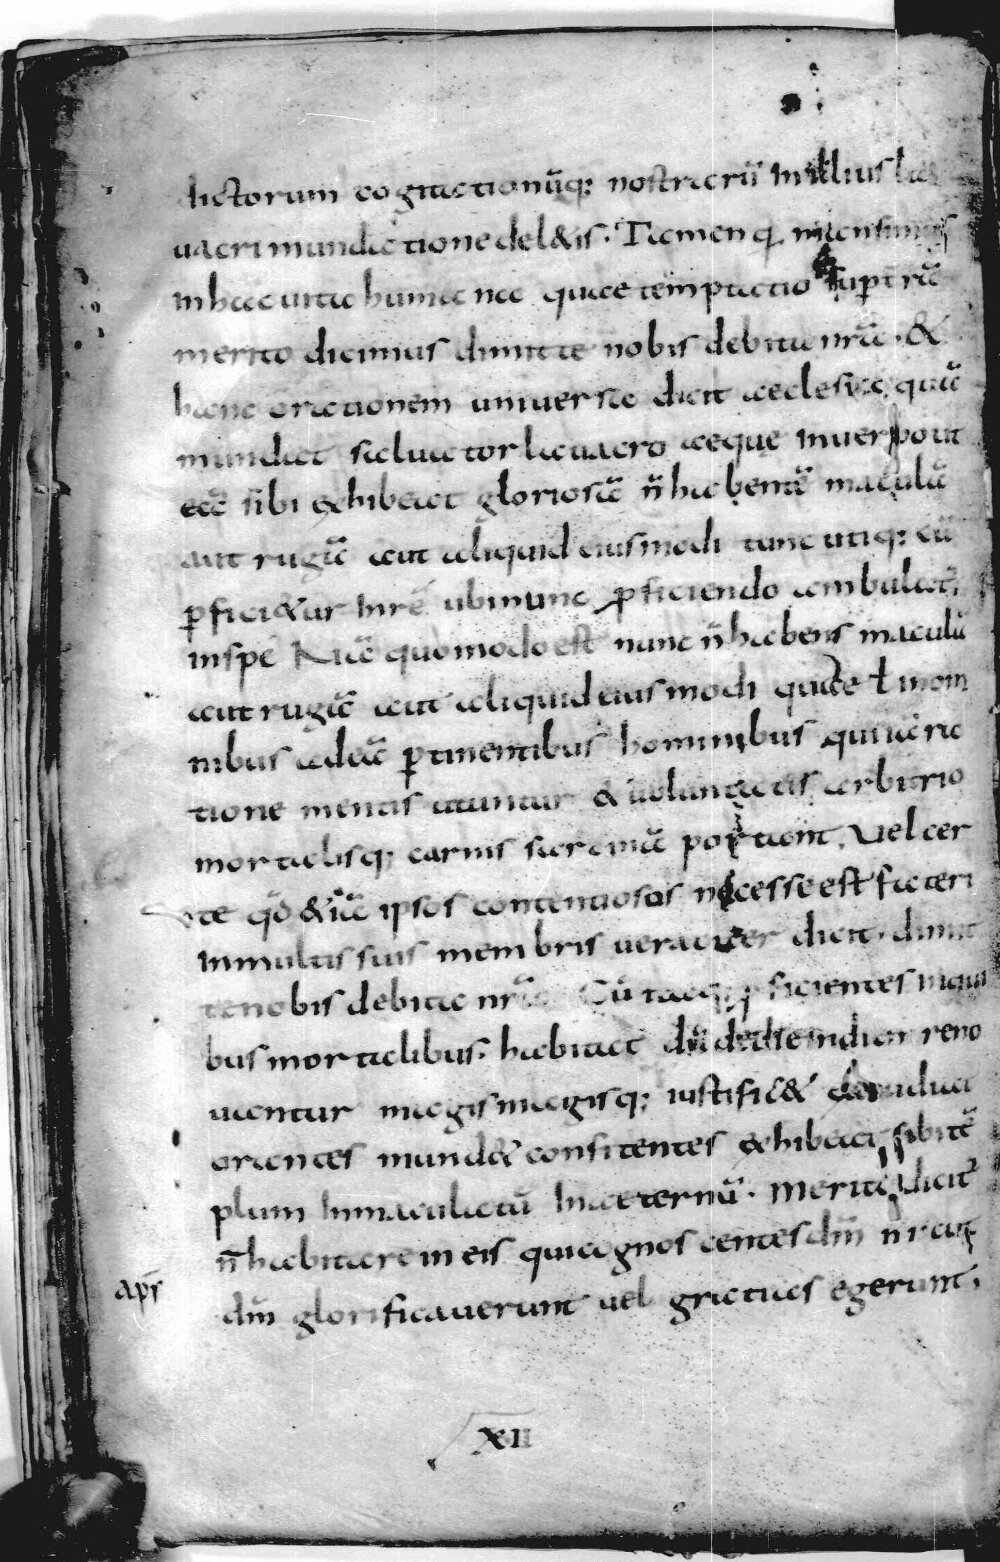 dictorum cogitationūq; nostrarū in illius la
uacri mundatione deletis. Tamen q
in hac uita humana quae temptatio sup trā
merito dicimus dimitte nobis debita nrā. &
hanc orationem uniuersa dicit aeclesia quā
mundat saluator lauacro aque in uerbo ut
eā sibi exhibeat gloriosā n̄ habentē maculā
aut rugā aut aliquid eiusmodi tunc utiq; cū
ꝑfici&ur in rē ubi nunc ꝓficiendo ambulat᷑
in spē Nā quomodo est nunc n̄ habens maculā
aut rugā aut aliquid eiusmodi quae ł in om
nibus ad eā ꝑtinentibus hominibus qui iā ra
tione mentis utuntur & uoluntatis arbitrio
mortalisq; carnis sarcinā portant, Vel cer
te qđ &iā ipsos contentiosos necesse est fateri
in multis suis membris ueraciter dicit, dimit
te nobis debita nrā Cū itaq; ꝓficientes in qui
bus mortalibus habitat dū de die in diem reno
uantur magis magisq; iustific& &
orantes mund& confitentes exhibeat sibi tē
plum inmaculatū in aeternū. Merito dicit᷑
n̄ habitare in eis qui cognoscentes dm̄ n̄ sicut
apŝ dm̄ glorificauerunt uel gratias egerunt,
XII